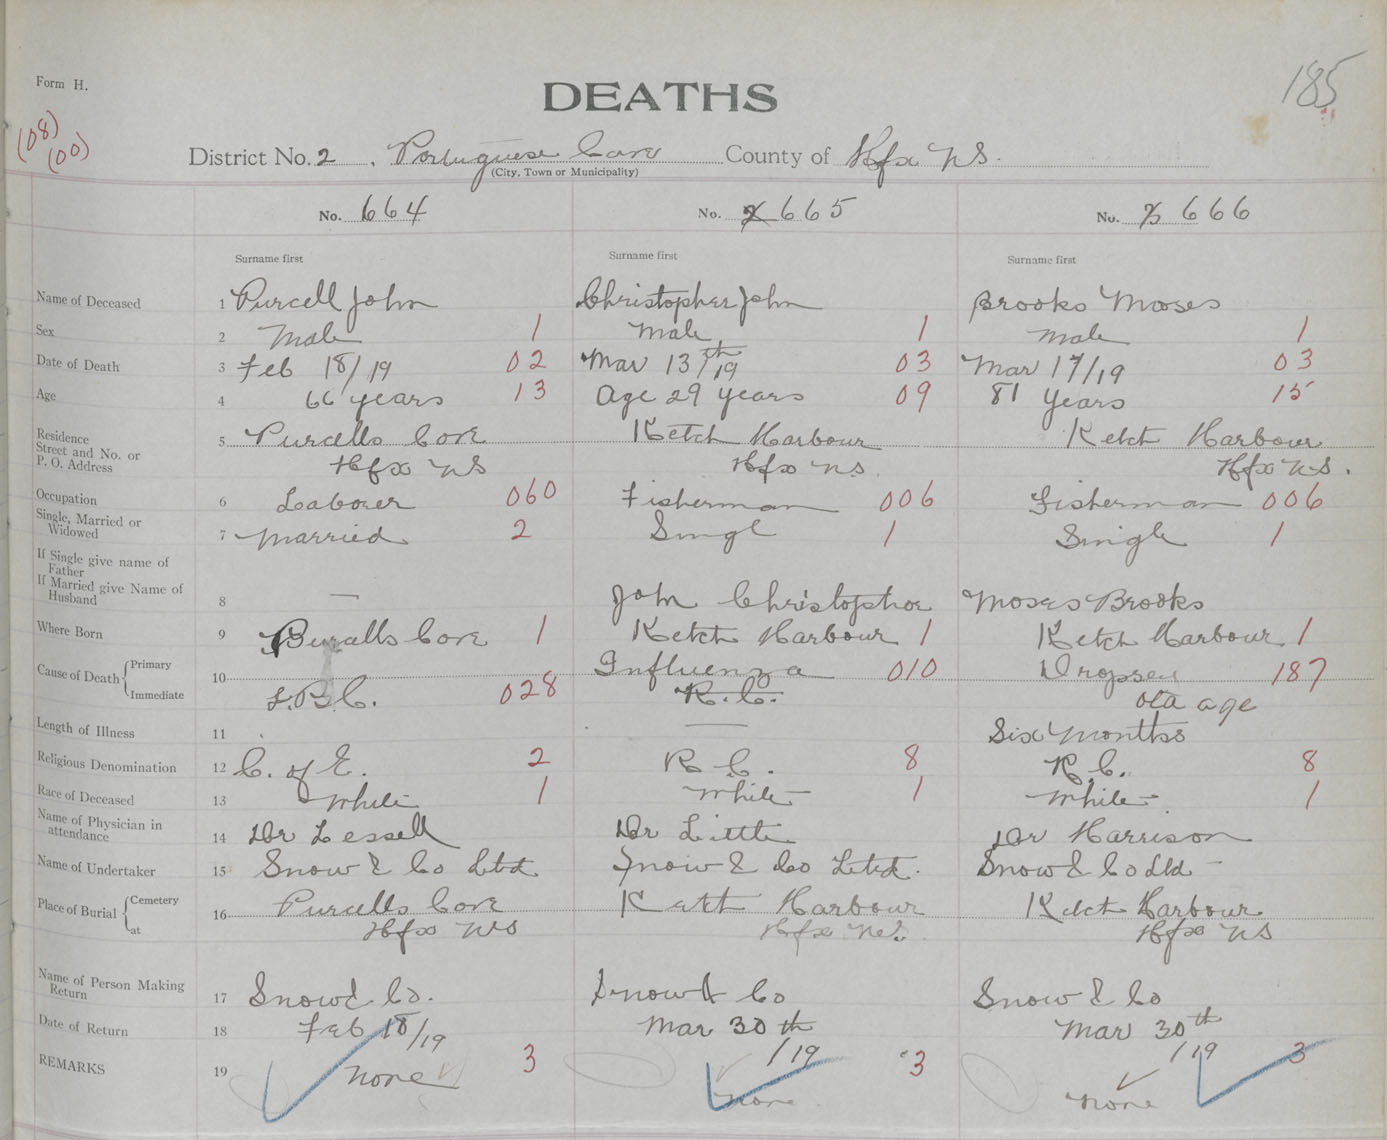 185
Form H.
DEATHS
(08)
(00)
District No. 2 , Portuguese Cove County of Hfx NS.
(City, Town or Municipality)
No. 664 No. 2 665 No. 3 666
Surname first Surname first Surname first
Name of Deceased 1 Purcell John Christopher John Brooks Moses
Sex 2 Male 1 Male 1 Male 1
Date of Death 3 Feb 18/19 02 Mar 13th/19 03 Mar 17/19 03
Age 4 66 years 13 Age 29 years 09 81 years 15
Residence
Street and No. or
P. O. Address
5 Purcells Cove Ketch Harbour Ketch Harbour
Hfx NS Hfx NS. Hfx NS.
Occupation 6 Laborer 060 Fisherman 006 Fisherman 006
Single, Married or
Widowed
7 Married 2 Singl 1 Single 1
If Single give name of
Father
If Married give Name of
Husband
8 — John Christophoe Moses Brooks
Where Born 9 Purcells Cove 1 Ketch Harbour 1 Ketch Harbour 1
Cause of Death { Primary
Immediate
10 Influenza 010 Dropsey 187
028 R. C. old age
Length of Illness 11 — Six Months
Religious Denomination 12 C. of E. 2 R C. 8 R.C. 8
Race of Deceased 13 White 1 White 1 White 1
Name of Physician in
attendance
14 Dr Lessell Dr Little Dr Harrison
Name of Undertaker 15 Snow & Co Ltd Snow & Co Ltd. Snow & Co Ltd
Place of Burial { Cemetery
at
16 Purcells Cove Ketch Harbour Ketch Harbour
Hfx NS Hfx NS. Hfx NS
Name of Person Making
Return
17 Snow & Co. Snow & Co Snow & Co
Date of Return 18 Feb 18/19 Mar 30th /19 Mar 30th /19
REMARKS 19 none 3 none 3 none 3